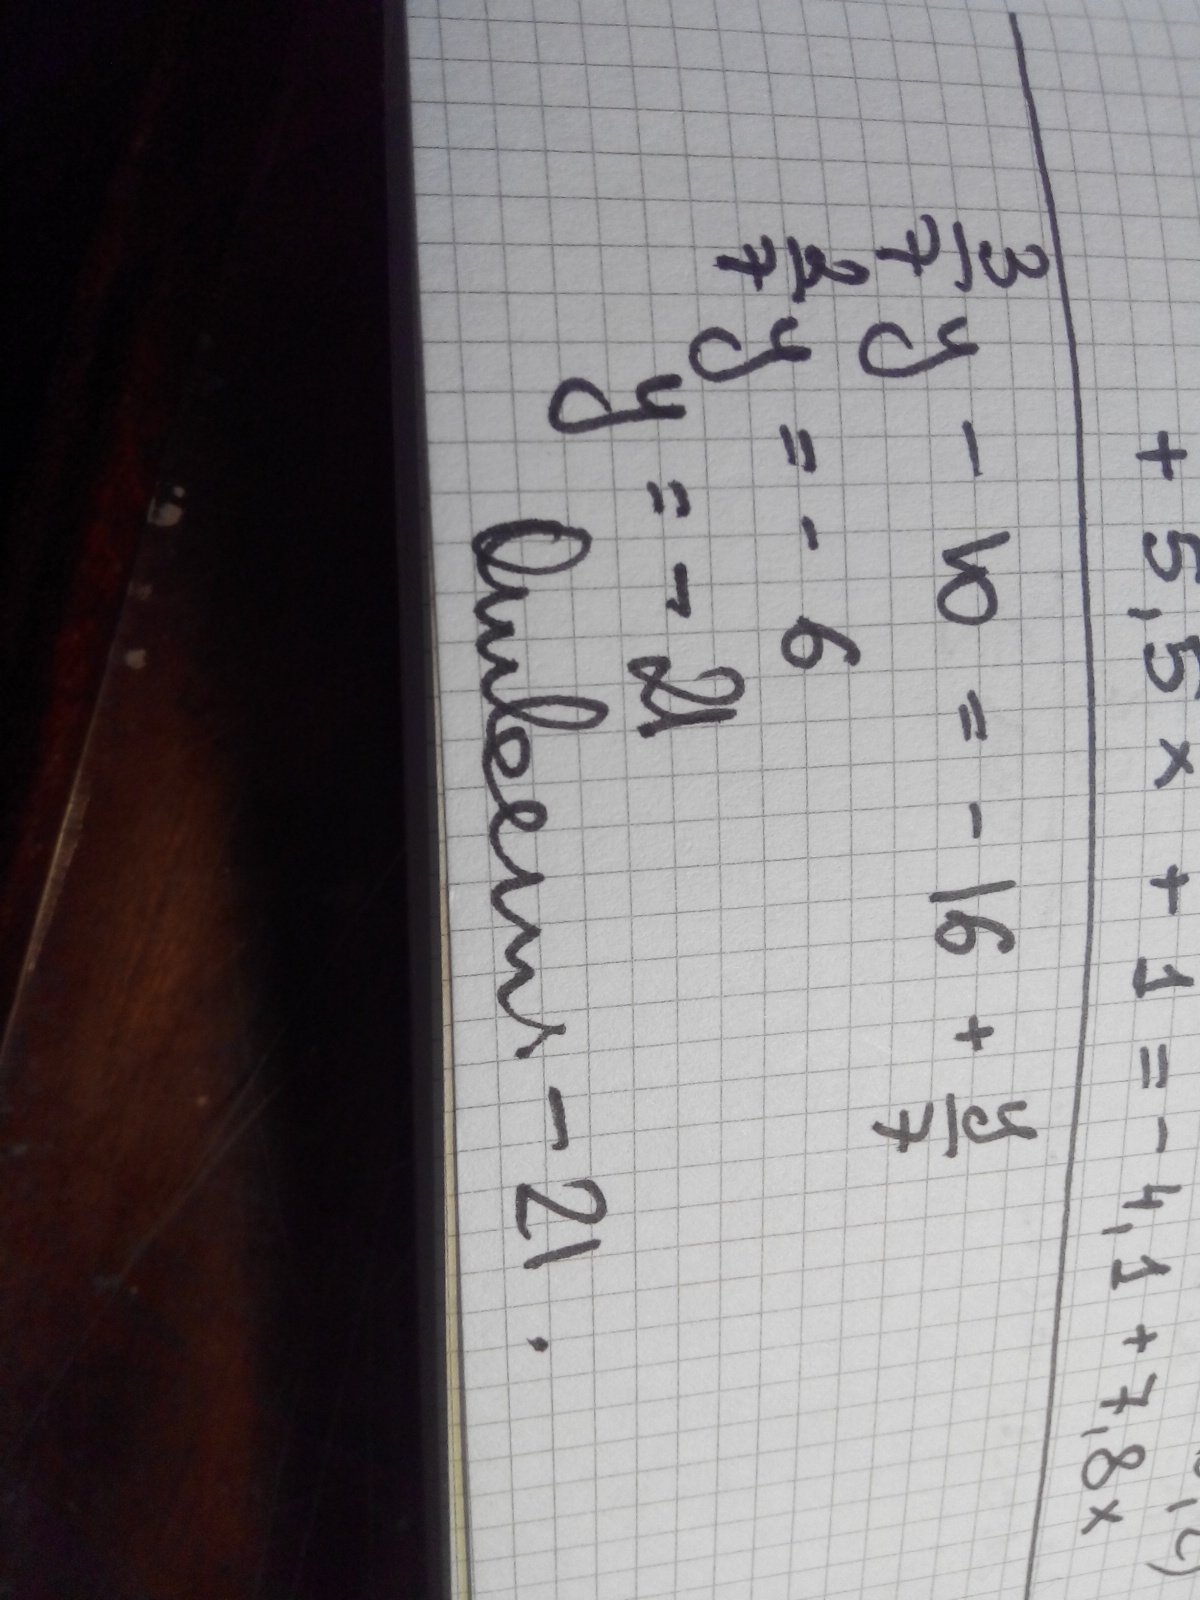 + 5,5x + 1 = - 4,1 + 7,8x
3/7 y - 10 = - 16 + y/7
2/7 y = - 6
y = - 21
Ответ - 21.